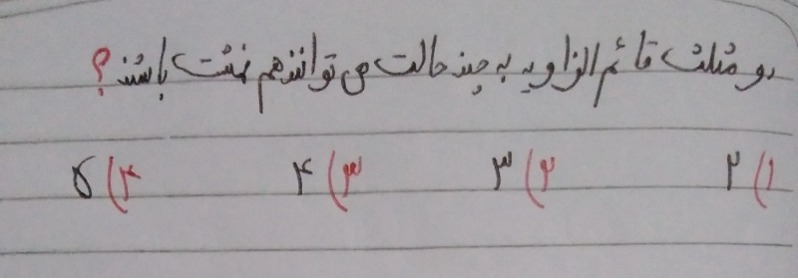 دو مثلث قائم الزاویه به چند حالت می توانند هم نهشت باشند؟
۱) ۲ ۲) ۳ ۳) ۴ ۴) ۵